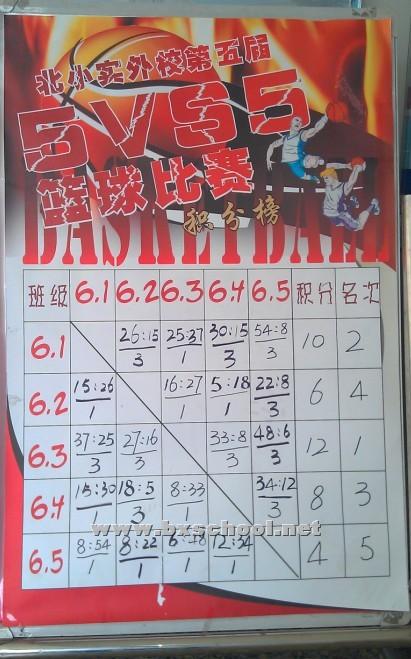 北小实外校第五届
5VS5
篮球比赛
积分榜
BASKETBALL
班级 6.1 6.2 6.3 6.4 6.5 积分 名次
6.1 26:15 25:37 30:15 54:8 10 2
3 1 3 3
6.2 15:26 16:27 5:18 22:8 6 4
1 1 1 3
6.3 37:25 27:16 33:8 48:6 12 1
3 3 3 3
6.4 15:30 18:5 8:33 34:12 8 3
1 3 1 3
www.bxschool.net
6.5 8:54 8:22 6:48 12:34 4 5
1 1 1 1